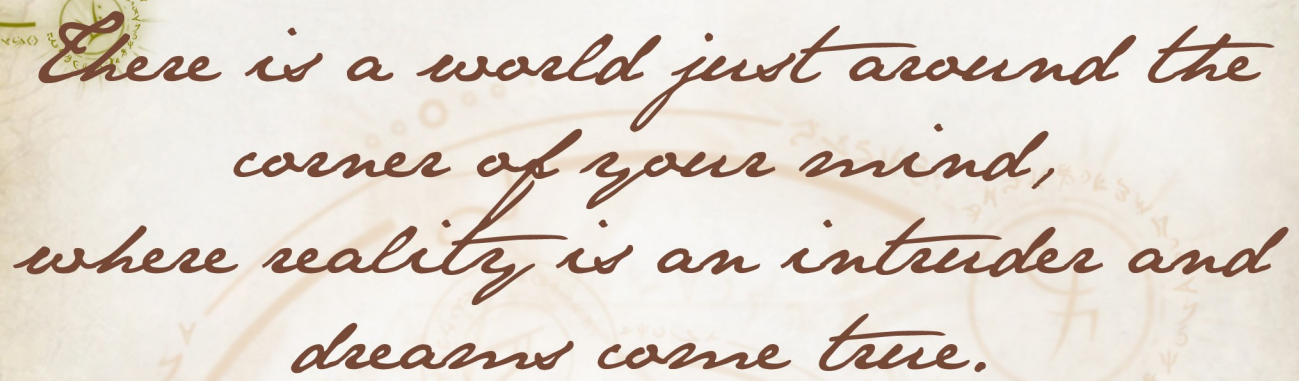 There is a world just around the
corner of your mind,
where reality is an intruder and
dreams come true.